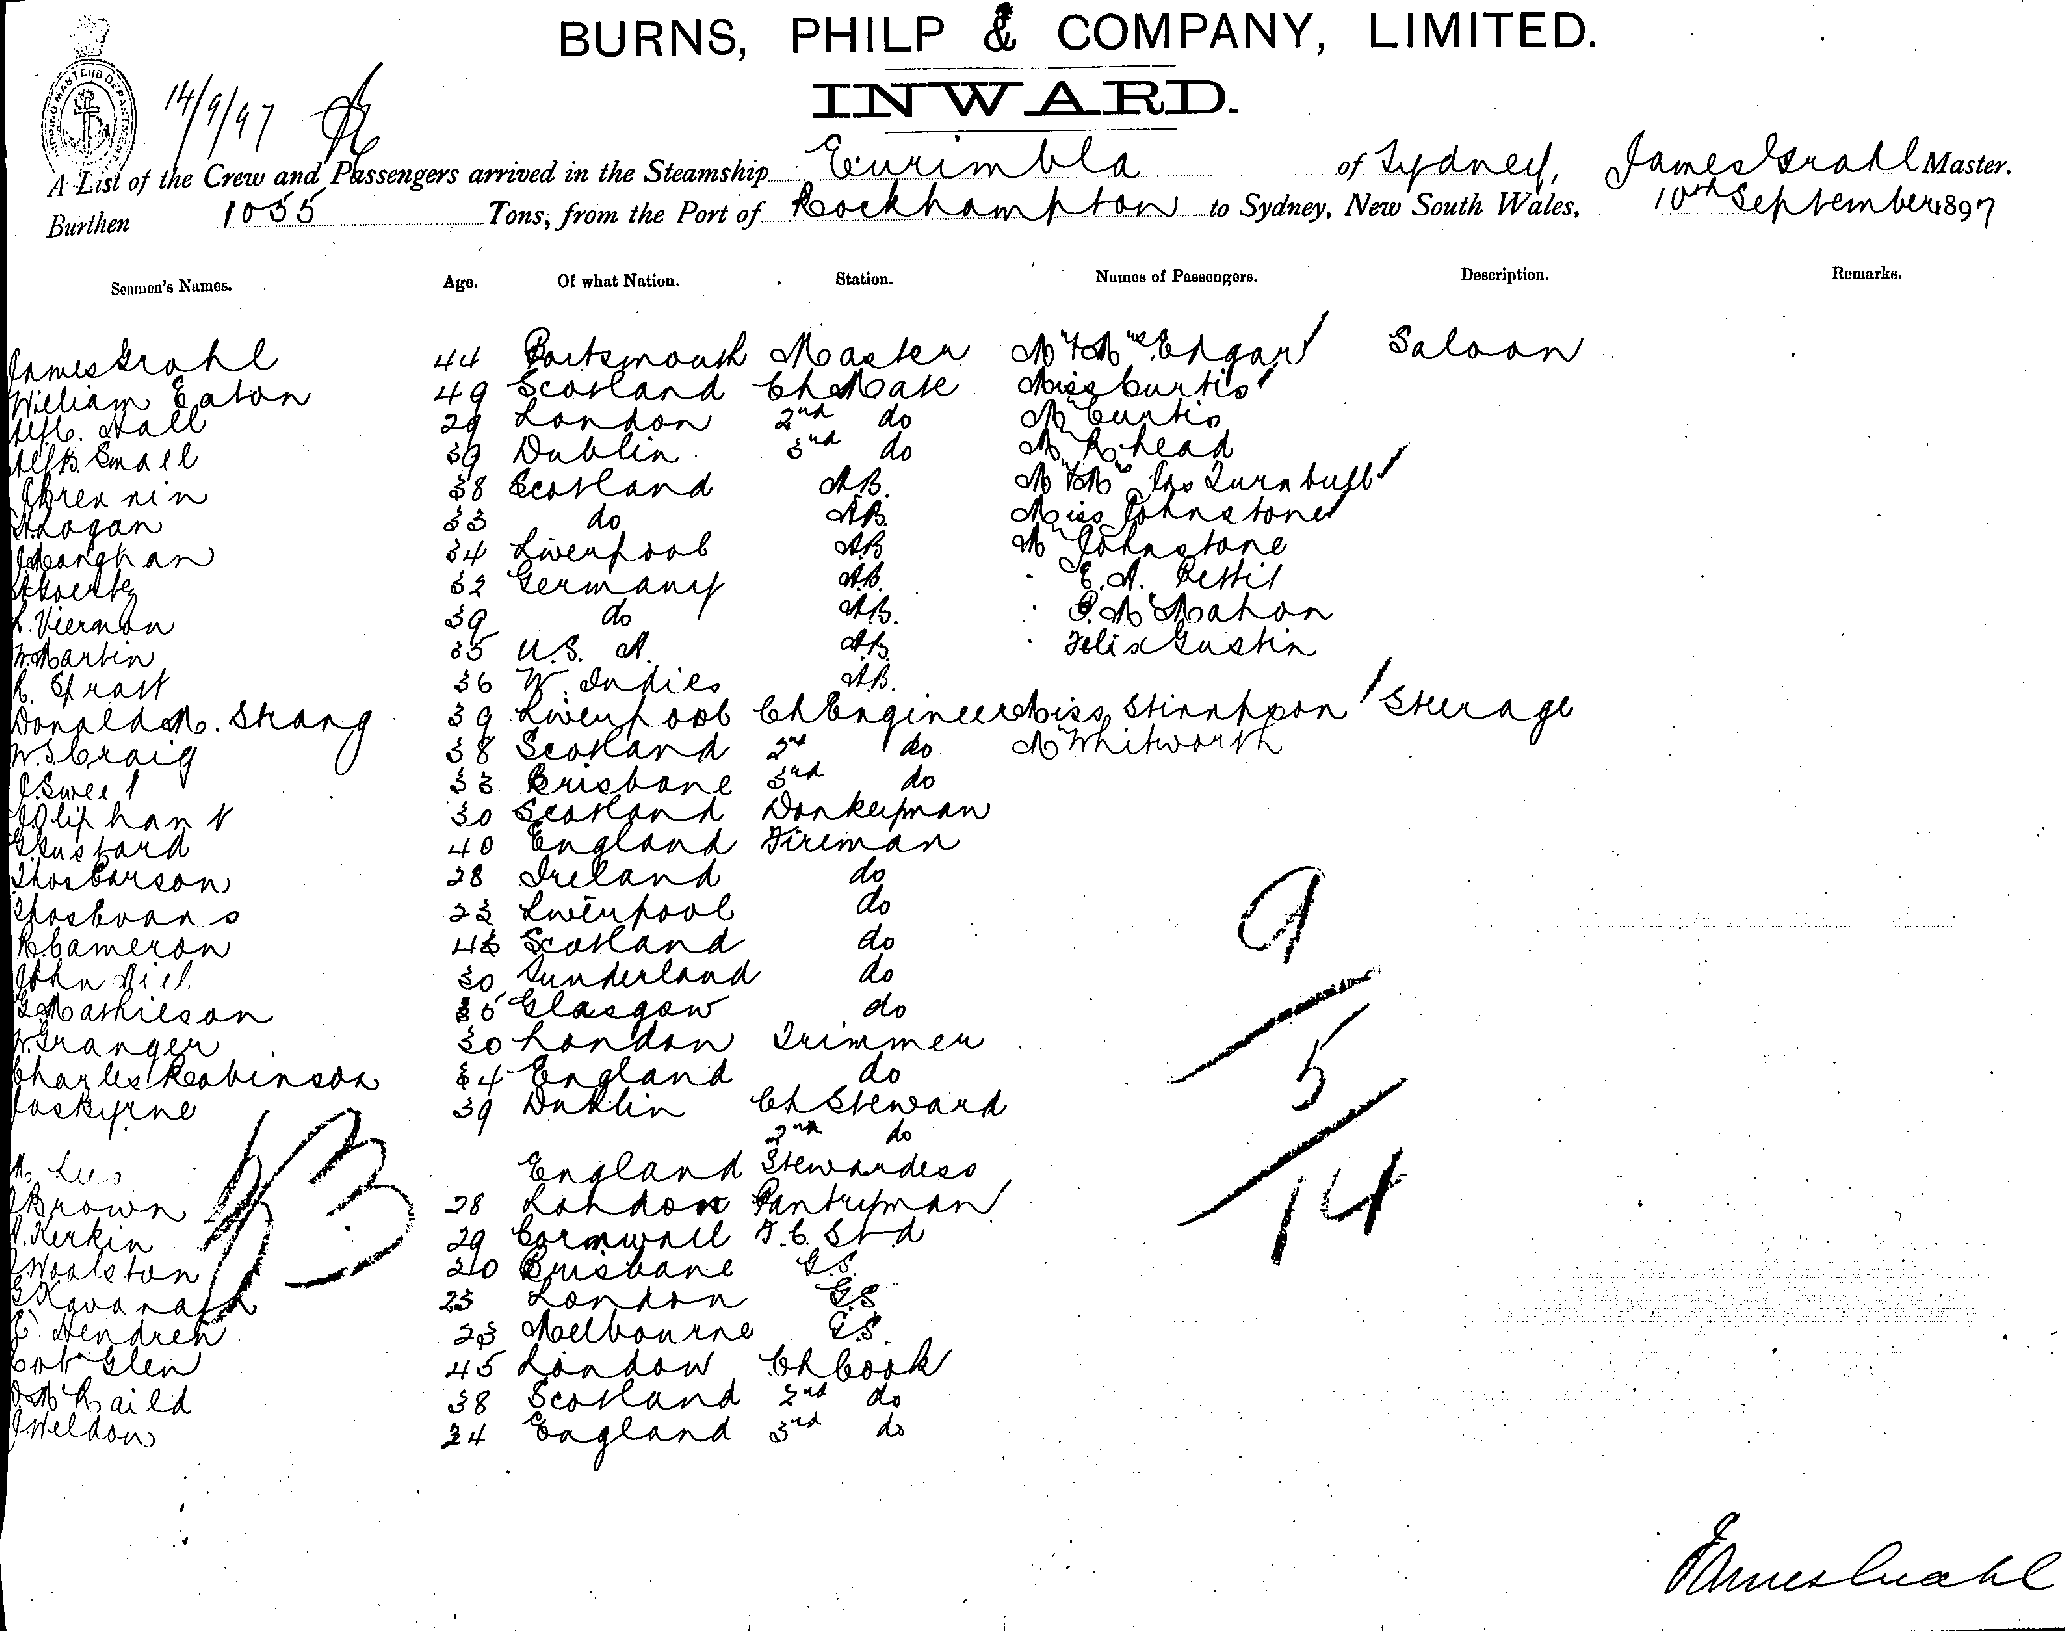 BURNS, PHILP & COMPANY, LIMITED.
INWARD.
14/9/97
A List of the Crew and Passengers arrived in the Steamship Eurimbla of Sydney, James Grahl Master.
Burthen 1055 Tons, from the Port of Rockhampton to Sydney, New South Wales, 10th September 1897
Seamen's Names. Age. Of what Nation. Station. Names of Passengers. Description. Remarks.
James Grahl 44 Portsmouth Master Mr & Mrs Edgar Saloon
William Eaton 49 Scotland Ch Mate Miss Curtis
Hall 29 London 2nd do Mr Curtis
Small 39 Dublin 3rd do Mr R. head
38 Scotland A.B. Mr & Mrs Jas Turnbull
Logan 33 do A.B. Miss Johnstone
34 Liverpool A.B. Mr Johnstone
32 Germany A.B. E. A. Pettit
L. Viernon 39 do A.B. P. McMahon
W. Martin 35 U.S. A. A.B. Felix Gustin
36 W. Indies A.B.
Donald M. Strang 39 Liverpool Ch Engineer Miss Steerage
W. S. Craig 38 Scotland 2nd do Mr Whitworth
J Sweet 33 Brisbane 3rd do
Oliphant 30 Scotland Donkeyman
40 England Fireman
Thos Carson 28 Ireland do
Thos Evans 23 Liverpool do
R Cameron Scotland do
John 30 Sunderland do
G Mathieson 35 Glasgow do
W Granger 30 London Trimmer
Charles Robinson 34 England do
Jas Byrne 39 Dublin Ch Steward
2nd do
England Stewardess
J Brown 28 London Pantryman
Kerkin 29 Cornwall F. C. Std
J Woolston 20 Brisbane G.S.
Kavanagh 23 London G.S.
E. Hendren 23 Melbourne G.S.
Robt Glen 45 London Ch Cook
38 Scotland 2nd do
J Weldon 24 England 3rd do
9
5
14
33
James Grahl